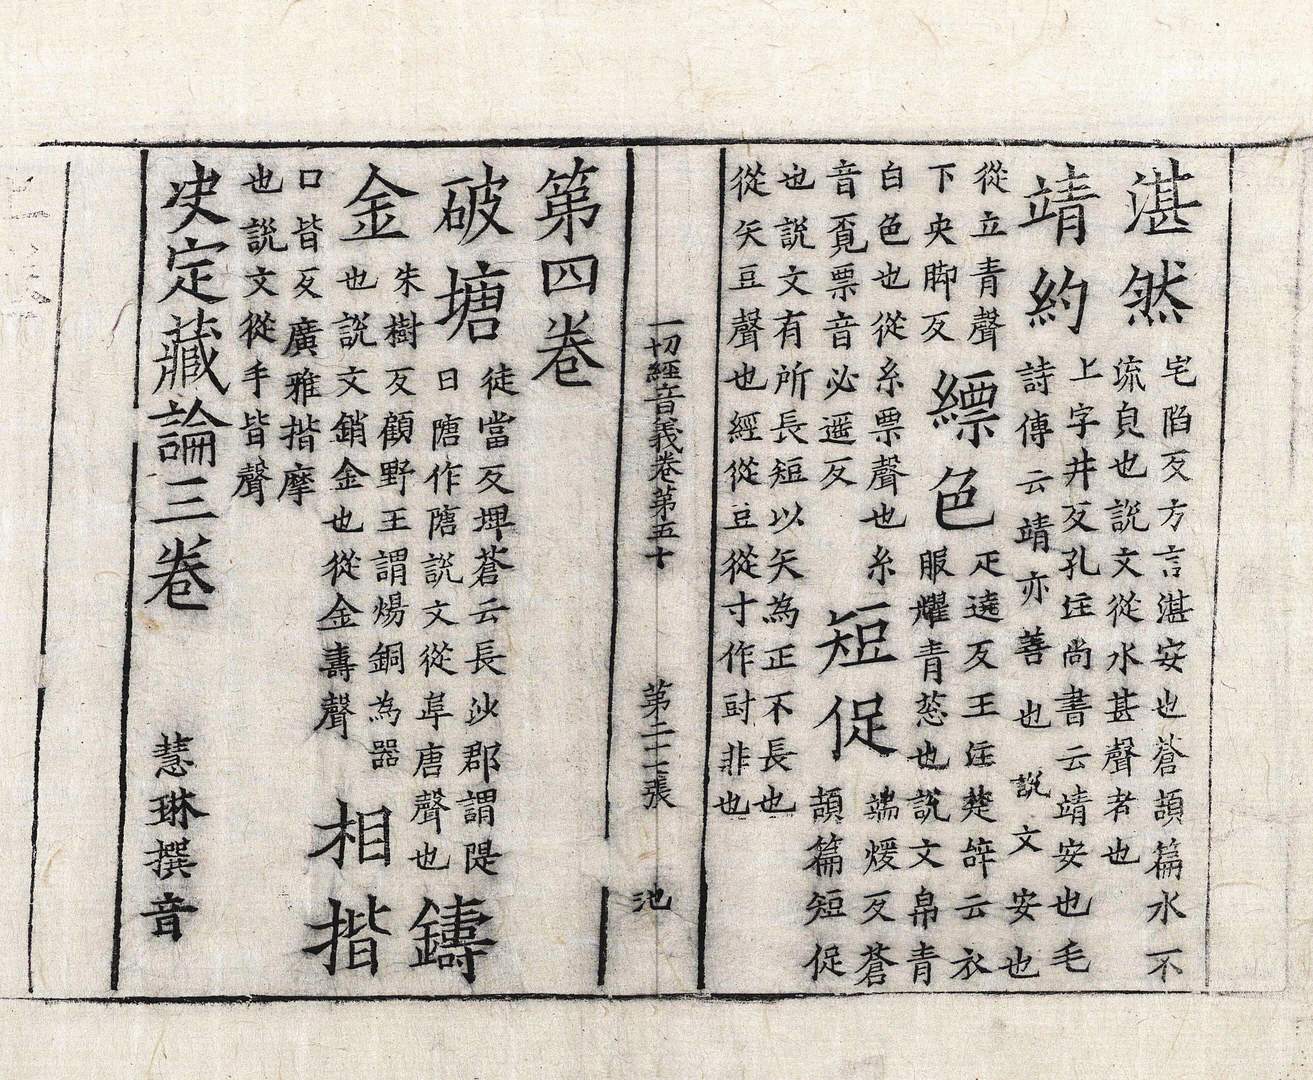 湛然宅陷反方言湛安也蒼頡篇水不流皃也說文從水甚聲者也
靖約上字井反孔注尚書云靖安也毛詩傳云靖亦善也說文安也
從立青聲下央脚反縹色疋遶反王注楚辝云衣服耀青葱也說文帛青
白色也從糸票聲也糸音覓票音必遥反短促端煖反蒼頡篇短促
也說文有所長短以矢為正不長也從矢豆聲也經從豆從寸作尌非也
一切經音義卷第五十 第二十二張 池
第四卷
破塘徒當反埤蒼云長沙郡謂隄曰䧜作䧜說文從阜唐聲也鑄
金朱樹反顧野王謂煬銅為器也說文銷金也從金壽聲相揩
口皆反廣雅揩摩也說文從手皆聲
决定藏論三卷 慧琳撰音